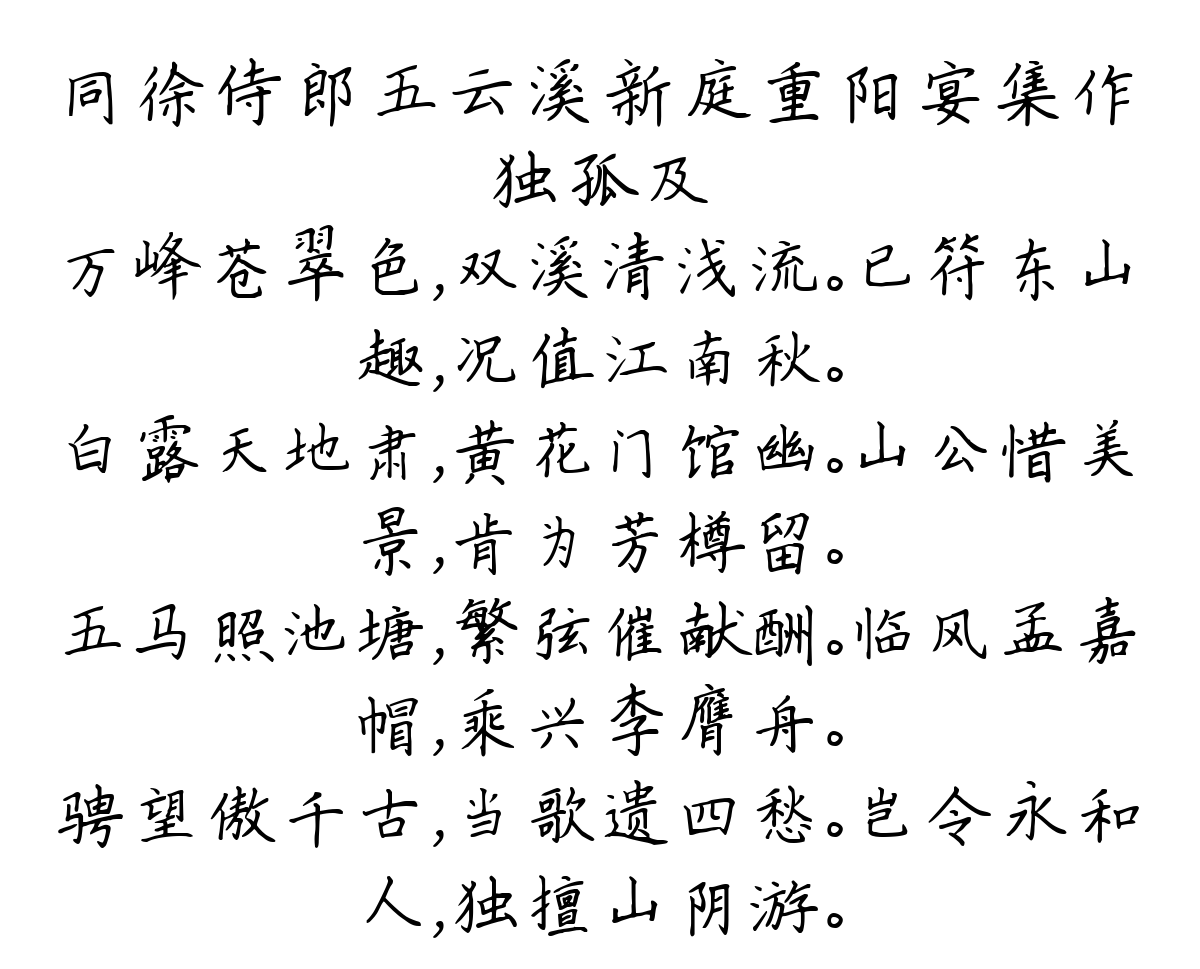 同徐侍郎五云溪新庭重阳宴集作
独孤及
万峰苍翠色,双溪清浅流。已符东山
趣,况值江南秋。
白露天地肃,黄花门馆幽。山公惜美
景,肯为芳樽留。
五马照池塘,繁弦催献酬。临风孟嘉
帽,乘兴李膺舟。
骋望傲千古,当歌遗四愁。岂令永和
人,独擅山阴游。